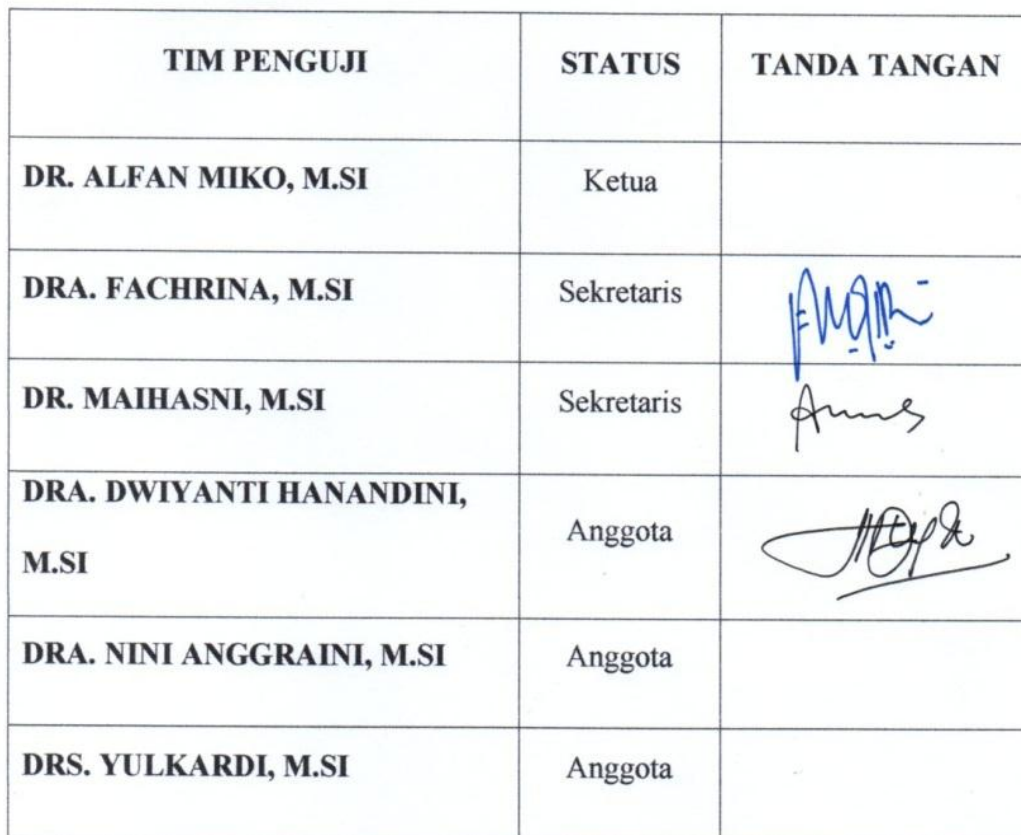 TIM PENGUJI STATUS TANDA TANGAN
DR. ALFAN MIKO, M.SI Ketua
DRA. FACHRINA, M.SI Sekretaris
DR. MAIHASNI, M.SI Sekretaris
DRA. DWIYANTI HANANDINI,
M.SI Anggota
DRA. NINI ANGGRAINI, M.SI Anggota
DRS. YULKARDI, M.SI Anggota